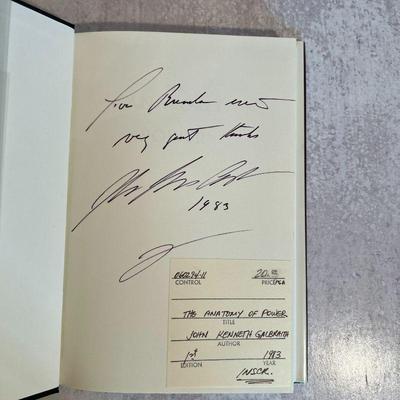 For Brenda with
very great thanks
1983
060294-11 20.00
CONTROL PRICE PGA
THE ANATOMY OF POWER
TITLE
JOHN KENNETH GALBRAITH
AUTHOR
1st 1983
EDITION YEAR
INSCR.